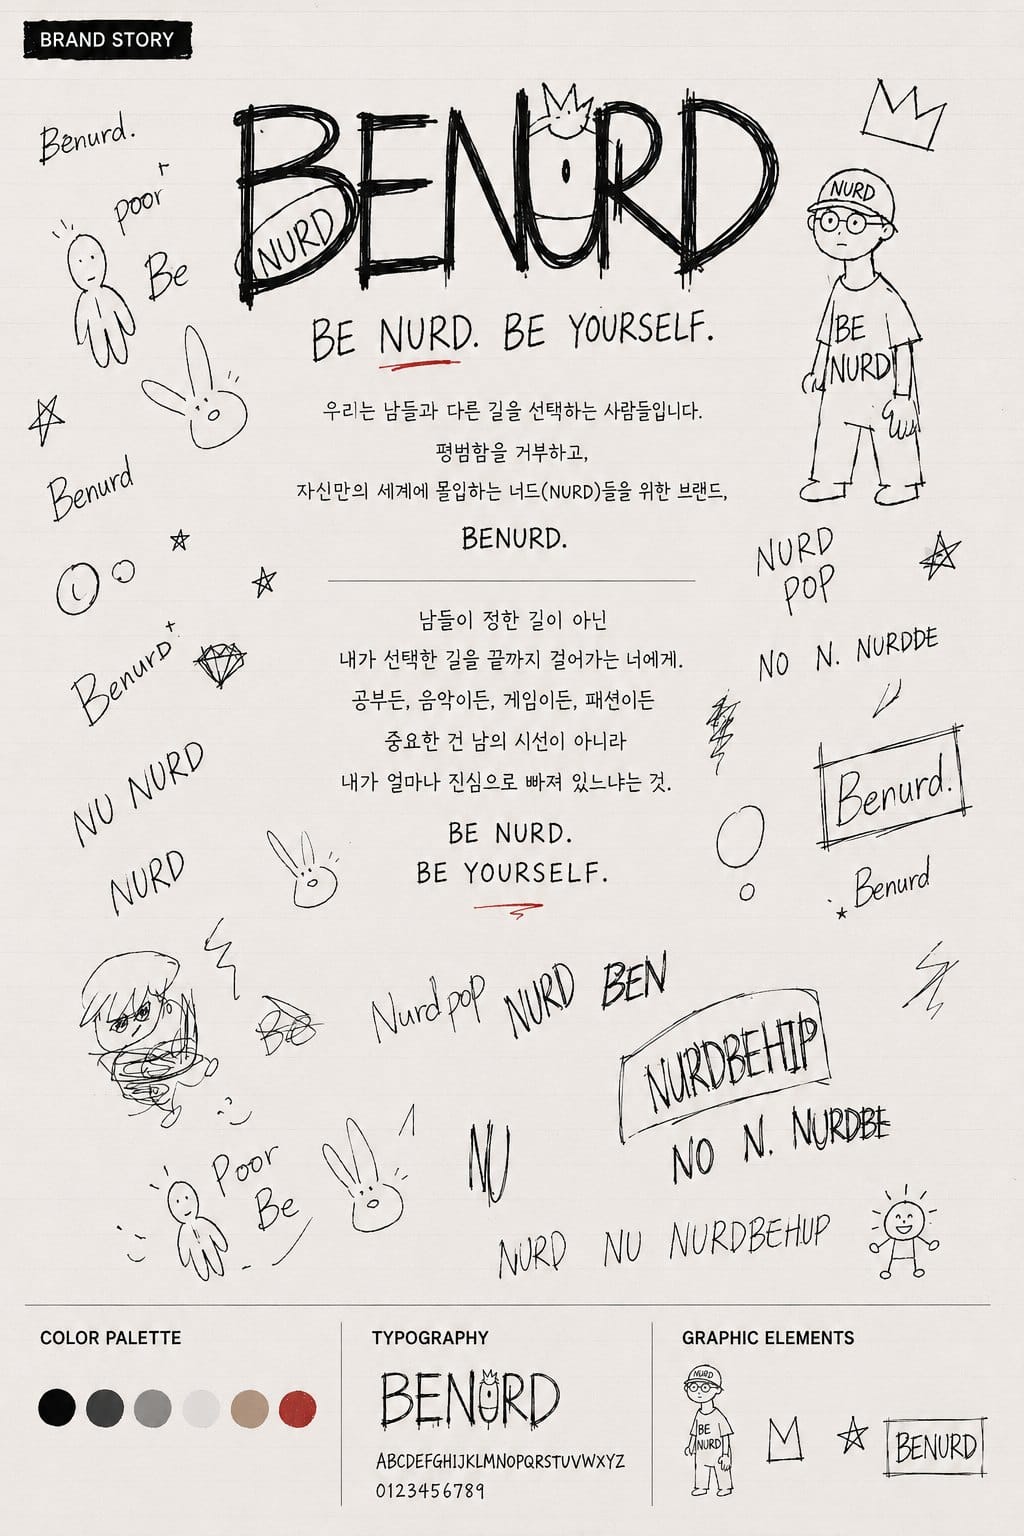 BRAND STORY
BENURD
NURD
BE NURD. BE YOURSELF.
우리는 남들과 다른 길을 선택하는 사람들입니다.
평범함을 거부하고,
자신만의 세계에 몰입하는 너드(NURD)들을 위한 브랜드,
BENURD.
남들이 정한 길이 아닌
내가 선택한 길을 끝까지 걸어가는 너에게.
공부든, 음악이든, 게임이든, 패션이든
중요한 건 남의 시선이 아니라
내가 얼마나 진심으로 빠져 있느냐는 것.
BE NURD.
BE YOURSELF.
Benurd.
poor
Be
Benurd
Benurd
NU NURD
NURD
NURD
BE
NURD
NURD
POP
NO N. NURDDE
Benurd.
Benurd
Be
Nurd pop
NURD BEN
NURDBEHIP
NO N. NURDBE
Poor
Be
NU
NURD NU NURDBEHUP
COLOR PALETTE
TYPOGRAPHY
BENURD
ABCDEFGHIJKLMNOPQRSTUVWXYZ
0123456789
GRAPHIC ELEMENTS
NURD
BE
NURD
BENURD